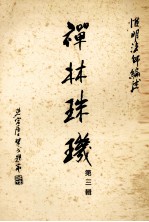 惟明法師編述
禪林珠璣
第三輯